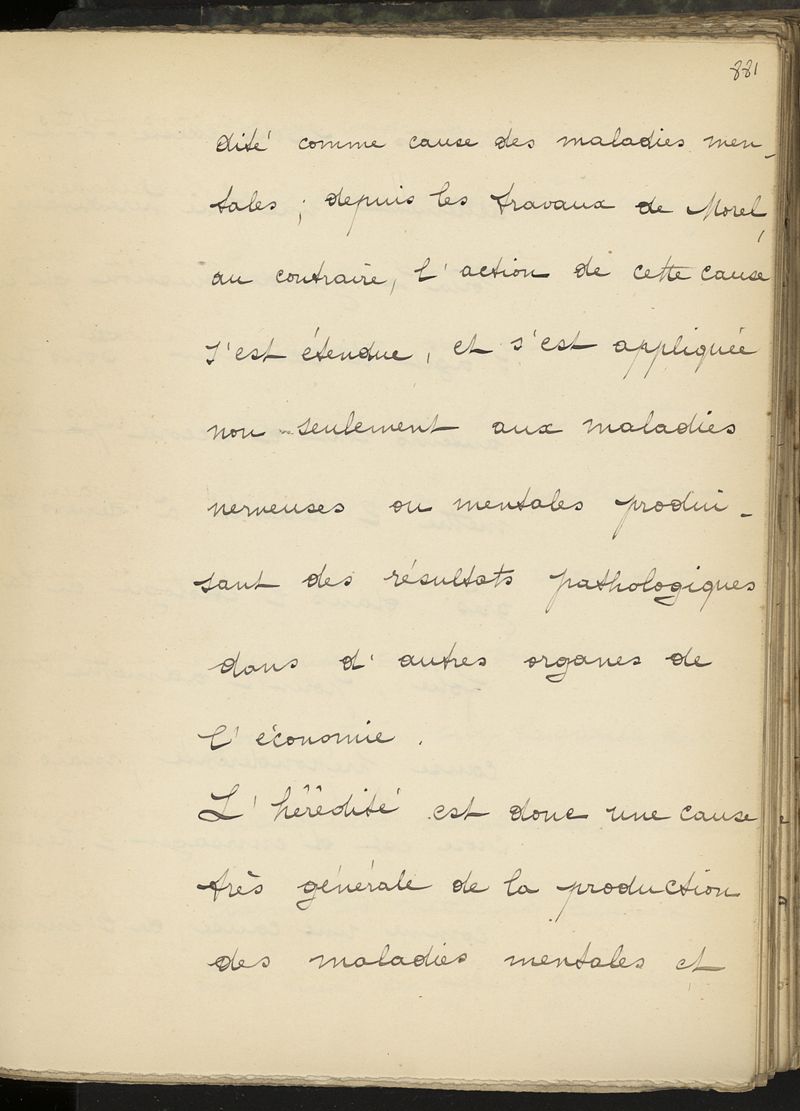 881
dité comme cause des maladies men-
tales ; depuis les travaux de Morel,
au contraire, l'action de cette cause
s'est étendue, et s'est appliquée
non seulement aux maladies
nerveuses ou mentales produi-
sant des résultats pathologiques
dans d'autres organes de
l'économie.
L'hérédité est donc une cause
très générale de la production
des maladies mentales et